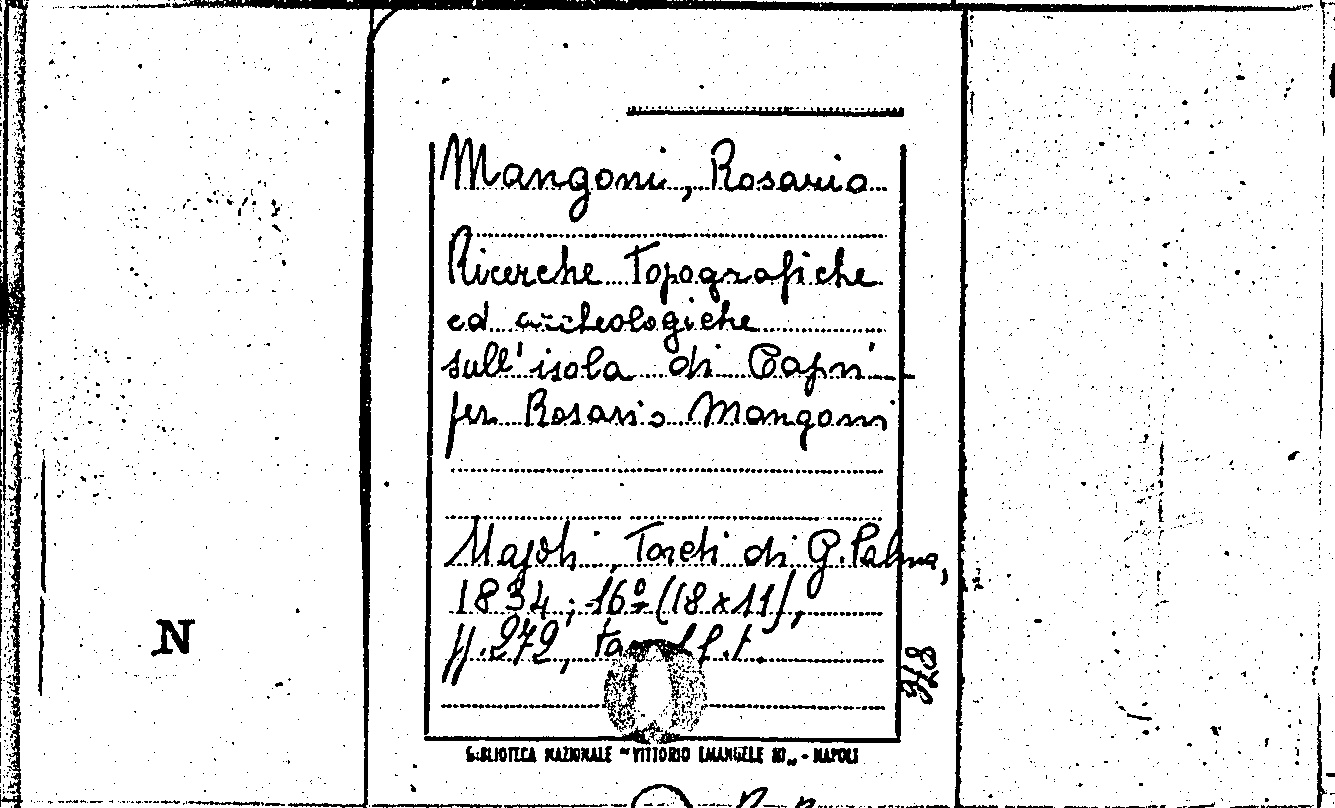 Mangoni, Rosario
Ricerche Topografiche
ed archeologiche
sull'isola di Capri
per Rosario Mangoni
Napoli, Torchi di G. Palma,
1834; 16º (18x11),
pp. 272, f.t.
N
BIBLIOTECA NAZIONALE "VITTORIO EMANUELE III" - NAPOLI